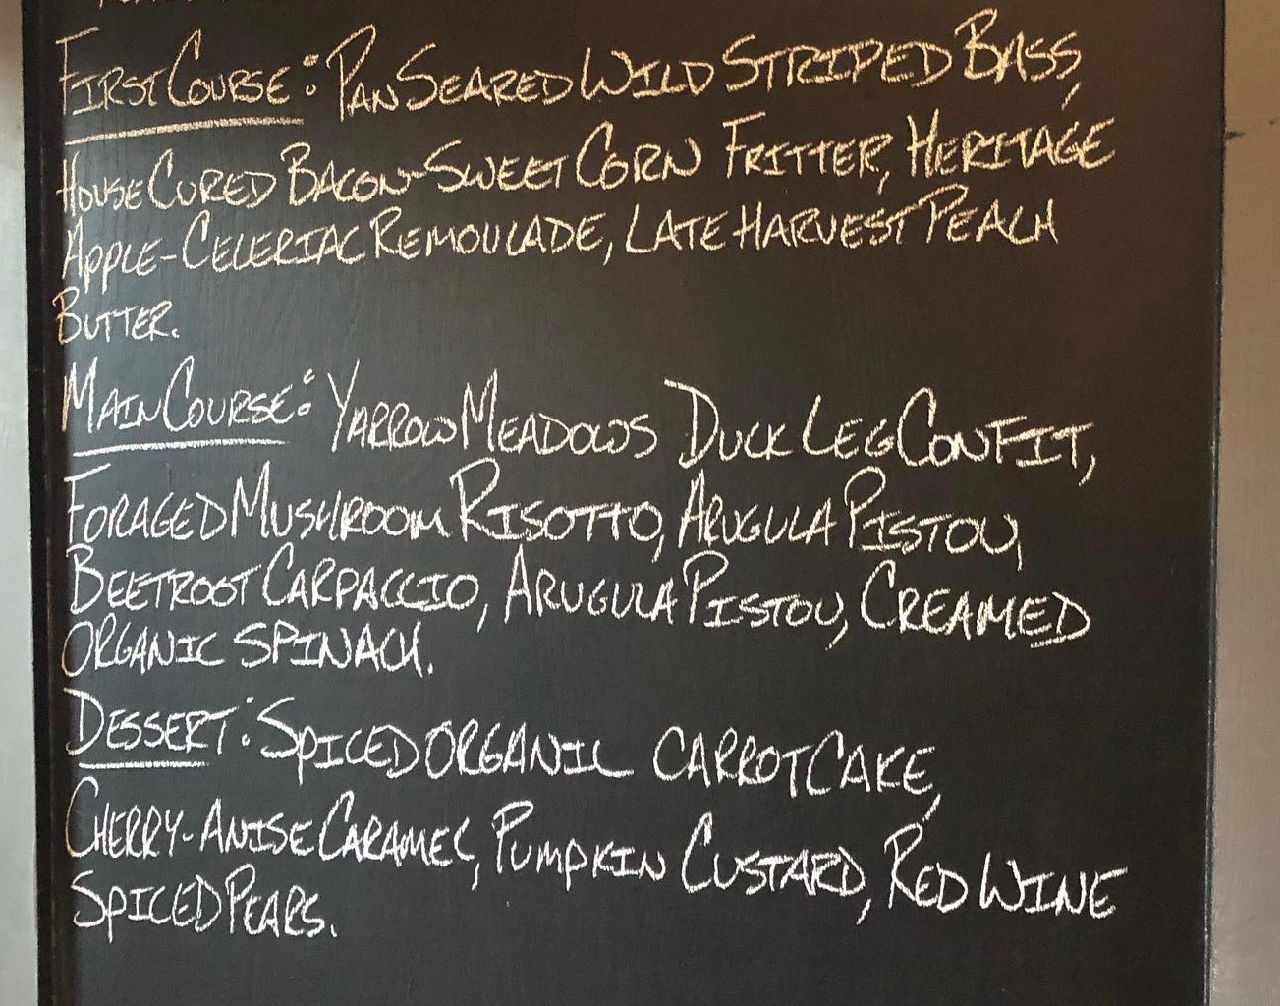 First Course: Pan Seared Wild Striped Bass,
House Cured Bacon-Sweet Corn Fritter, Heritage
Apple-Celeriac Remoulade, Late Harvest Peach
Butter.
Main Course: Yarrow Meadows Duck Leg Confit,
Foraged Mushroom Risotto, Arugula Pistou,
Beetroot Carpaccio, Arugula Pistou, Creamed
Organic Spinach.
Dessert: Spiced Organic Carrot Cake,
Cherry-Anise Caramel, Pumpkin Custard, Red Wine
Spiced Pears.